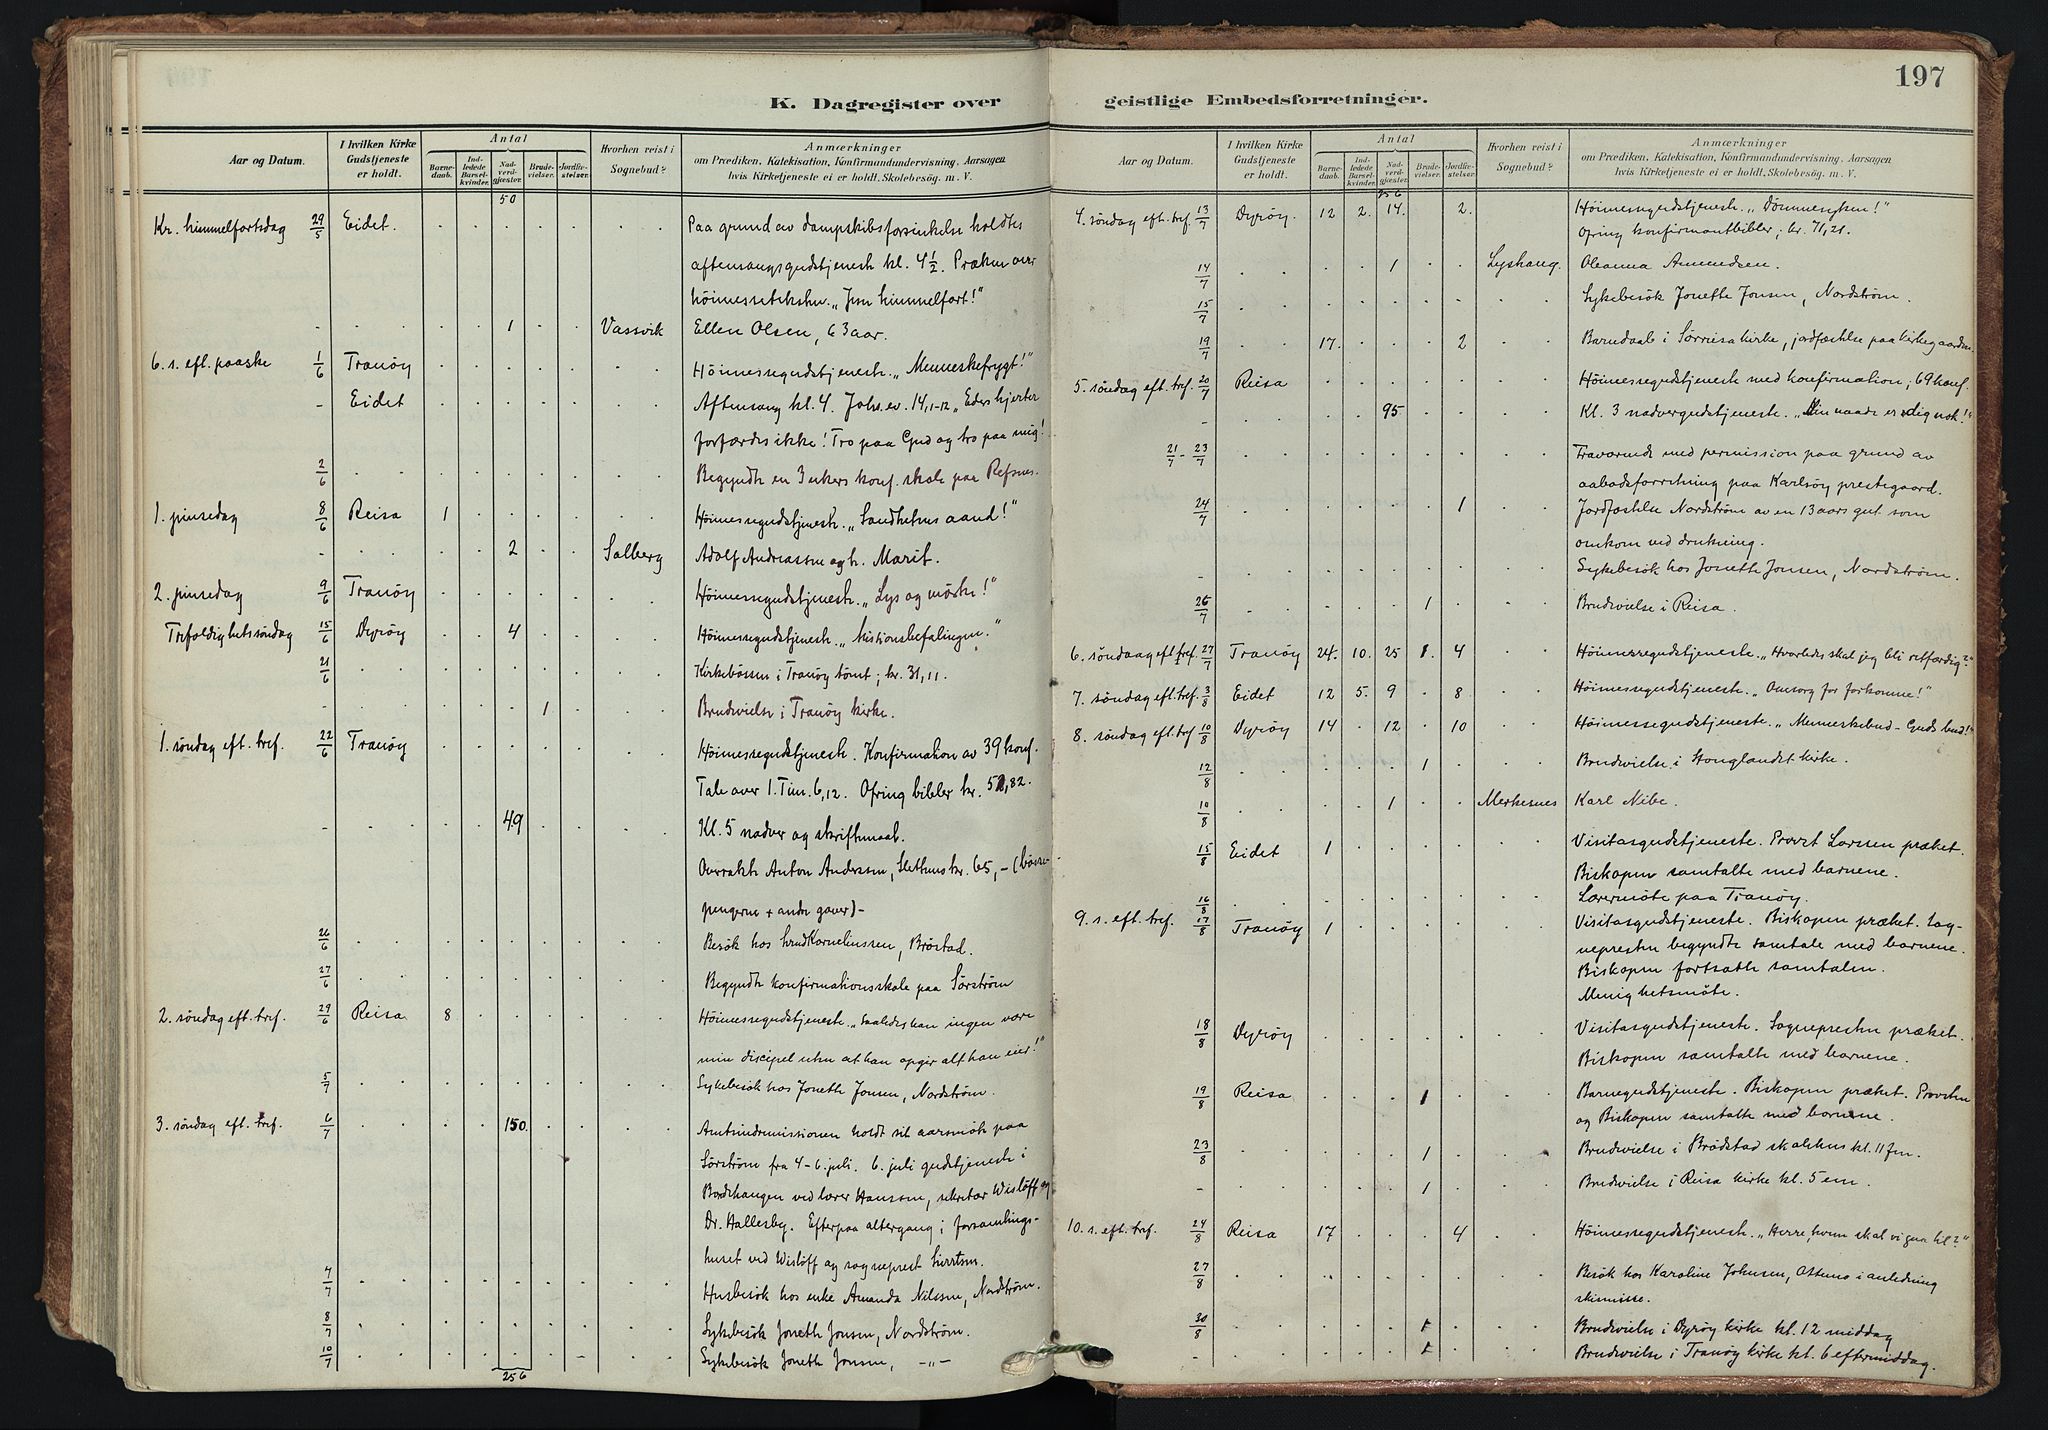 197
K. Dagregister over
geistlige Embedsforretninger.
Aar og Datum.
I hvilken Kirke Gudstjeneste er holdt.
Antal
Barne-daab.
Ind-ledede Barsel-kvinder.
Nad-verd-gjæster.
Brude-vielser.
Jordfæ-stelser.
Hvorhen reist i Sognebud?
Anmærkninger
om Prædiken, Katekisation, Konfirmandundervisning. Aarsagen
hvis Kirketjeneste ei er holdt. Skolebesøg. m. V.
50
Kr. himmelfartsdag 29/5 Eidet. Paa grund av dampskibsforsinkelse holdtes
aftensangsgudstjeneste kl. 4 1/2. Præken over
höimesseteksten. "Jesu himmelfart!"
1 Vassvik Ellen Olsen, 63 aar.
6. s. eft. paaske 1/6 Tranöy Höimessegudstjeneste. "Menneskefrygt!"
- Eidet Aftensang kl. 4. Joh. ev. 14,1-12 "Eders hjerter
forfærdes ikke! Tro paa Gud og tro paa mig!
2/6 Begyndte en 3 ukers konf. skole paa Refsnes.
1. pinsedag 8/6 Reisa 1 Höimessegudstjeneste. "Sandhetens aand!"
- 2 Solberg Adolf Andreassen og h. Marit.
2. pinsedag 9/6 Tranöy Höimessegudstjeneste. "Lys og mörke!"
Trefoldighetssöndag 15/6 Dyröy 4 Höimessegudstjeneste. "Missionsbefalingen."
21/6 Kirkebössen i Tranöy tömt; kr. 31,11.
- 1 Brudevielse i Tranöy kirke.
1. söndag eft. tref. 22/6 Tranöy Höimessegudstjeneste. Konfirmation av 39 konf.
Tale over 1. Tim. 6,12. Ofring bibler kr. 52,82.
- 49 Kl. 5 nadver og skriftemaal.
Overrakte Anton Andersen, kr. 65,-
pengerne + andre gaver)-
26/6 Besök hos Kornelinssen, Bröstad.
27/6 Begyndte konfirmationsskole paa Sörström
2. söndag eft. tref. 29/6 Reisa 8 Höimessegudstjeneste. "Saaledes kan ingen være
min discipel uten at han opgir alt han eier!"
5/7 Sykebesök hos Jonette Jonsen, Nordström.
3. söndag eft. tref. 6/7 150. Amtsindremissionen holdt sit aarsmöte paa
Sörström fra 4-6. juli. 6. juli gudstjeneste i
ved lærer Hanssen, sekretær Wislöff og
Dr. Hallesby. Efterpaa altergang i forsamlings-
huset ved Wislöff og sogneprest
7/7 Husbesök hos enke Amanda Nilssen, Nordström.
8/7 Sykebesök Jonette Jonsen, Nordström.
10/7 Sykebesök Jonette Jonsen, -"-
256
Aar og Datum.
I hvilken Kirke Gudstjeneste er holdt.
Antal
Barne-daab.
Ind-ledede Barsel-kvinder.
Nad-verd-gjæster.
Brude-vielser.
Jordfæ-stelser.
Hvorhen reist i Sognebud?
Anmærkninger
om Prædiken, Katekisation, Konfirmandundervisning. Aarsagen
hvis Kirketjeneste ei er holdt. Skolebesøg. m. V.
256
4. söndag eft. tref. 13/7 Dyröy. 12 2. 14. 2. Höimessegudstjeneste. "Dömmesyken!"
Ofring konfirmantbibler; kr. 71,21.
14/7 1 Lyshaug. Oleanna Amundsen.
15/7 Sykebesök Jonette Jonsen, Nordström.
19/7 17. 2 Barnedaab i Sörreisa kirke, jordfæstelse paa kirkegaarden.
5. söndag eft. tref. 20/7 Reisa Höimessegudstjeneste med konfirmation; 69 konf.
- 95 Kl. 3 nadvergudstjeneste. "Min naade er dig nok!"
21/7 - 23/7 Fraværende med permission paa grund av
aabodsforretning paa Karlsöy prestegaard.
24/7 1 Jordfæstelse Nordström av en 13 aars gut som
omkom ved drukning.
- Sykebesök hos Jonette Jonsen, Nordström.
26/7 1 Brudevielse i Reisa.
6. söndag eft. tref. 27/7 Tranöy 24. 10. 25 1. 4 Höimessegudstjeneste. "Hvorledes skal jeg bli retfærdig?"
7. söndag eft. tref. 3/8 Eidet 12 5. 9 8 Höimessegudstjeneste. "Omsorg for forkomne!"
8. söndag eft. tref 10/8 Dyröy 14 12 10 Höimessegudstjeneste. "Menneskebud - Guds bud!"
12/8 1 Brudevielse i Stonglandet kirke.
10/8 1 Merkesnes Karl Nibe.
15/8 Eidet 1 Visitasgudstjeneste. Provst Larssen præket.
Biskopen samtalte med barnene.
16/8 Lærermöte paa Tranöy.
9. s. eft. tref. 17/8 Tranöy 1 Visitasgudstjeneste. Biskopen præket. Sog-
nepresten begyndte samtale med barnene.
Biskopen fortsatte samtalen.
Menighetsmöte.
18/8 Dyröy Visitasgudstjeneste. Sognepresten præket.
Biskopen samtalte med barnene.
19/8 Reisa 1 Barnegudstjeneste. Biskopen præket. Provsten
og Biskopen samtalte med barnene.
23/8 1 Brudevielse i Brödstad skolehus kl. 11 fm.
- 1 Brudevielse i Reisa kirke kl. 5 em.
10. s. eft. tref. 24/8 Reisa 17 4 Höimessegudstjeneste. "Herre, hvem skal vi gaa til?"
27/8 Besök hos Karoline Johnsen, i anledning
skismisse.
30/8 1 Brudevielse i Dyröy kirke kl. 12 middag
- 1 Brudevielse i Tranöy kirke kl. 6 eftermiddag.